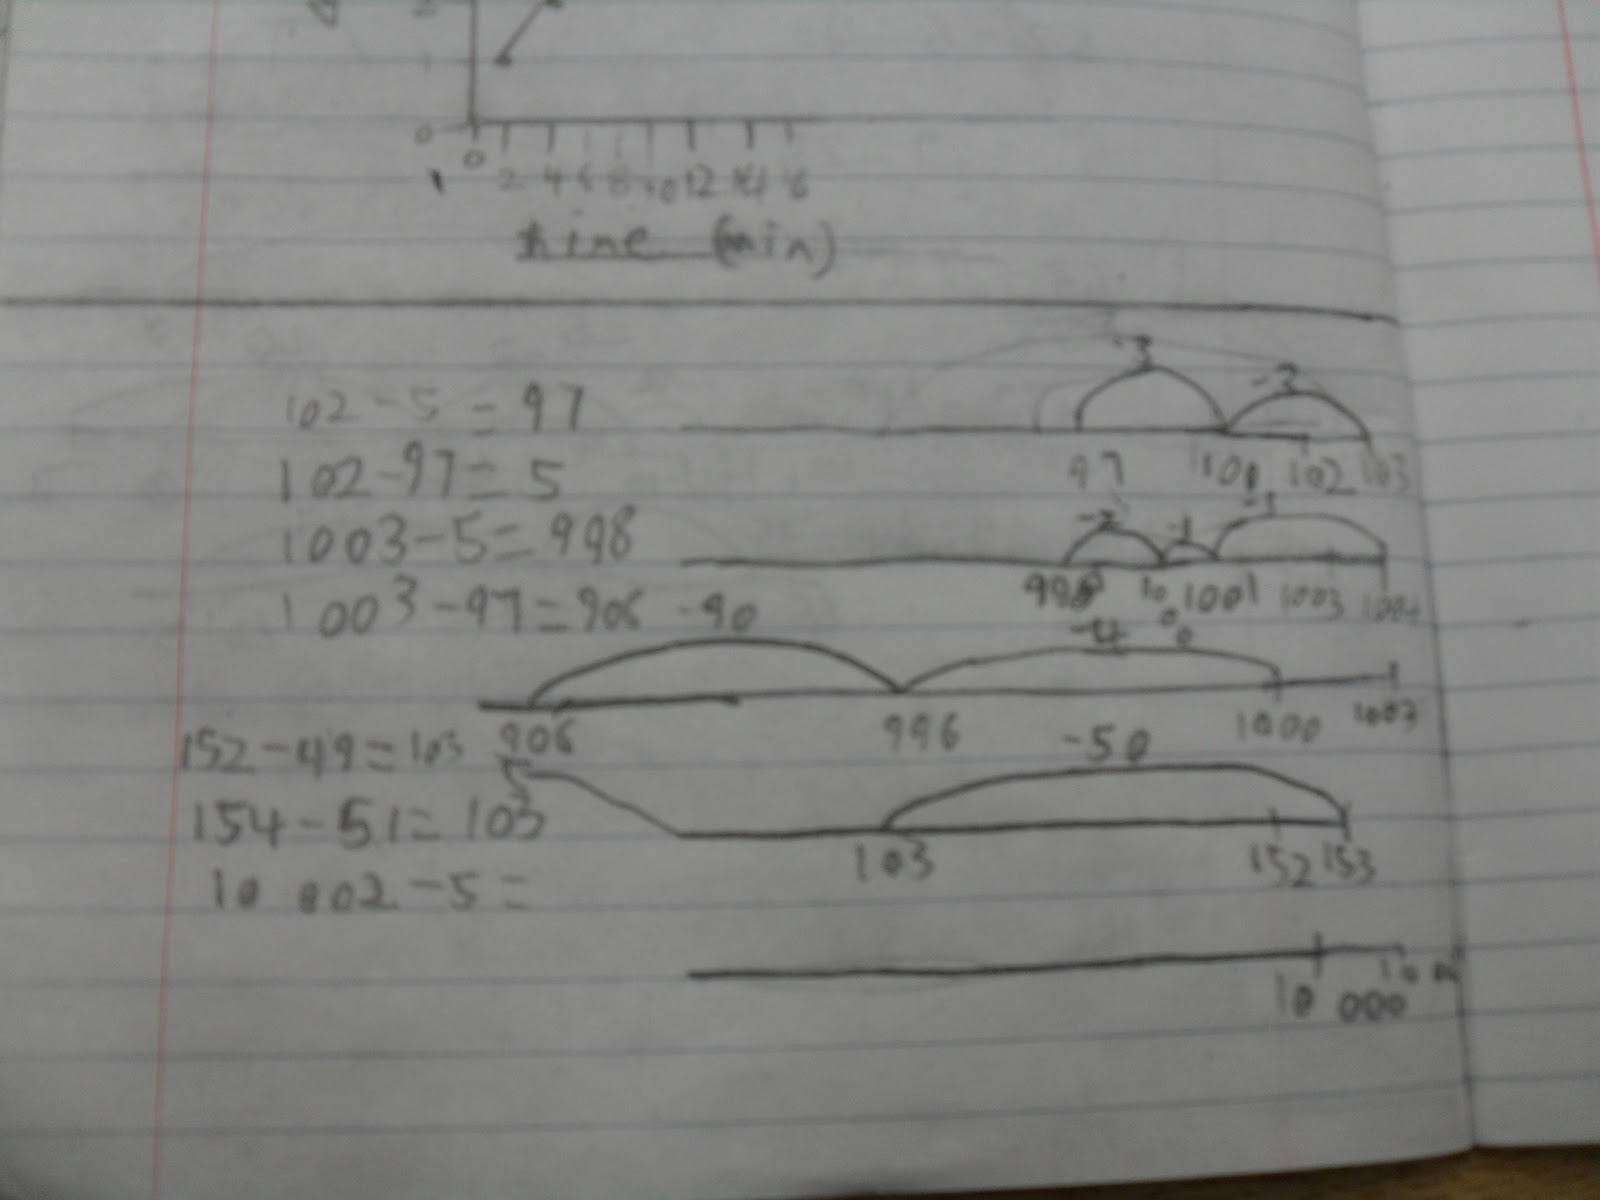 2
1
0
0 2 4 6 8 10 12 14 16
time (min)
102 - 5 = 97
-3 -2
97 100 102 103
102 - 97 = 5
1003 - 5 = 998
-2 -1 -1
998 1000 1001 1003
1003 - 97 = 906
-90 -4
906 996 1000 1003
152 - 49 = 103
-50
103 152 153
154 - 51 = 103
10 002 - 5 =
10 000